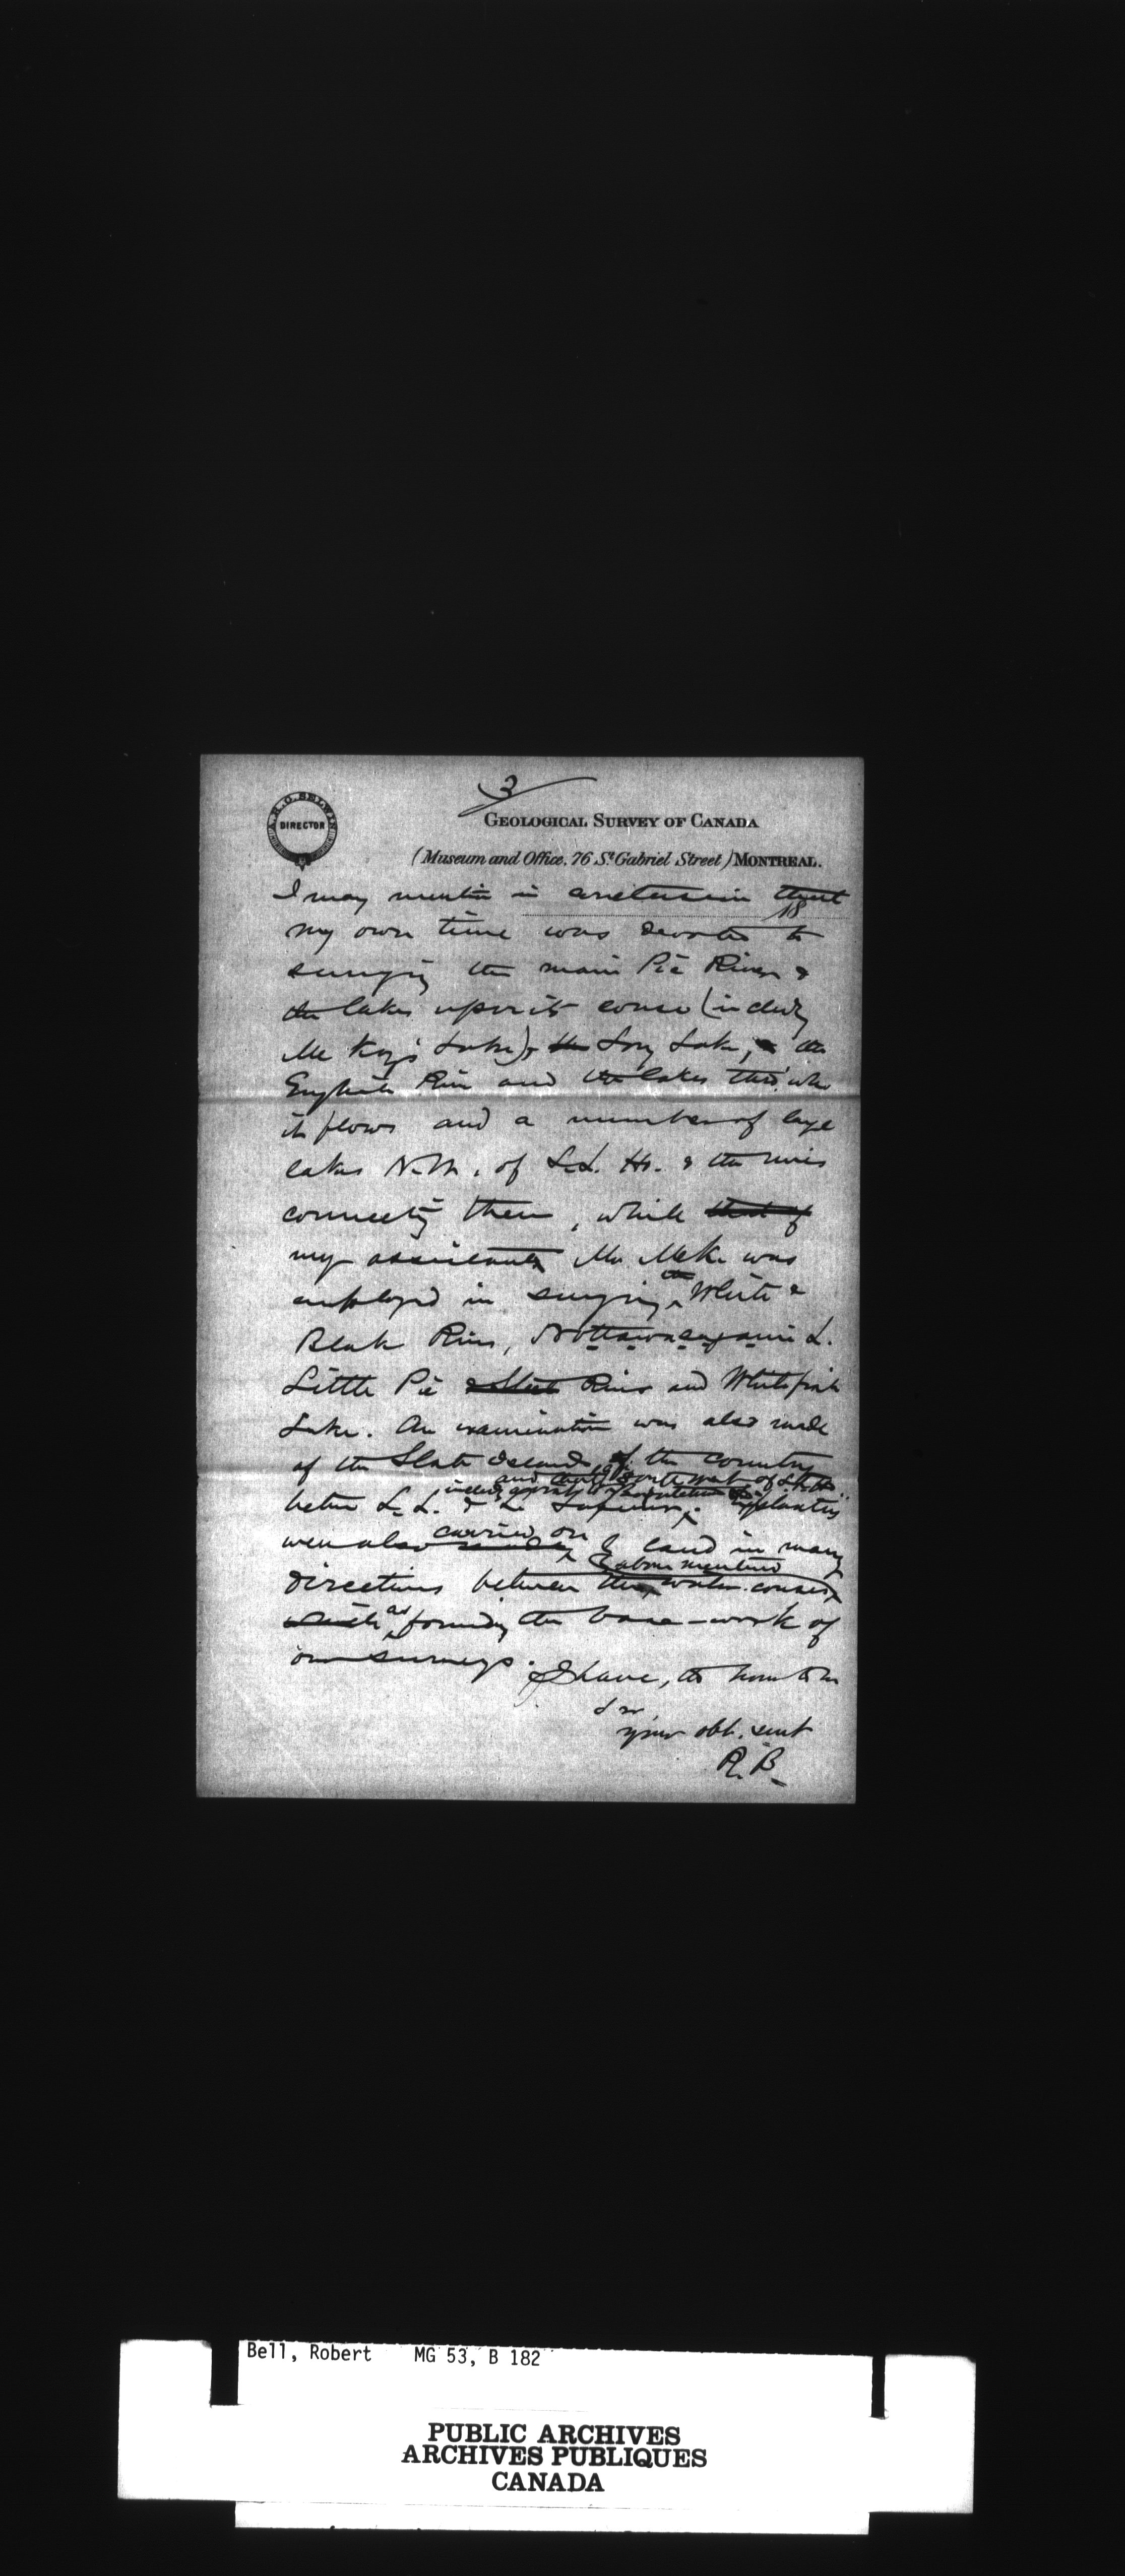 3
A.R.C. SELWYN
DIRECTOR
GEOLOGICAL SURVEY OF CANADA
(Museum and Office. 76 St Gabriel Street) MONTREAL.
18
I may mention in conclusion that
my own time was devoted to
the main Pic River &
the lakes upon its course (including
McKay's Lake), the Long Lake, & the
English River and the lakes thro' wh
it flows and a number of large
lakes N.W. of L.L. Ho. & the rivers
connecting them, while that of
my assistant Mr. McK. was
employed in the White &
Black Rivs, L.
Little Pic Rivers and Whitefish
Lake. An examination was also made
of the Slate Islands, of the country
and that South West of L.L. Ho.
L.L. & L. Superior.
were also carried on by land in many
above mentioned
directions between the water-courses
as forming the base-work of
our surveys. I have, the honor to be
Sir,
your obt. servt
R.B.
Bell, Robert MG 53, B 182
PUBLIC ARCHIVES
ARCHIVES PUBLIQUES
CANADA